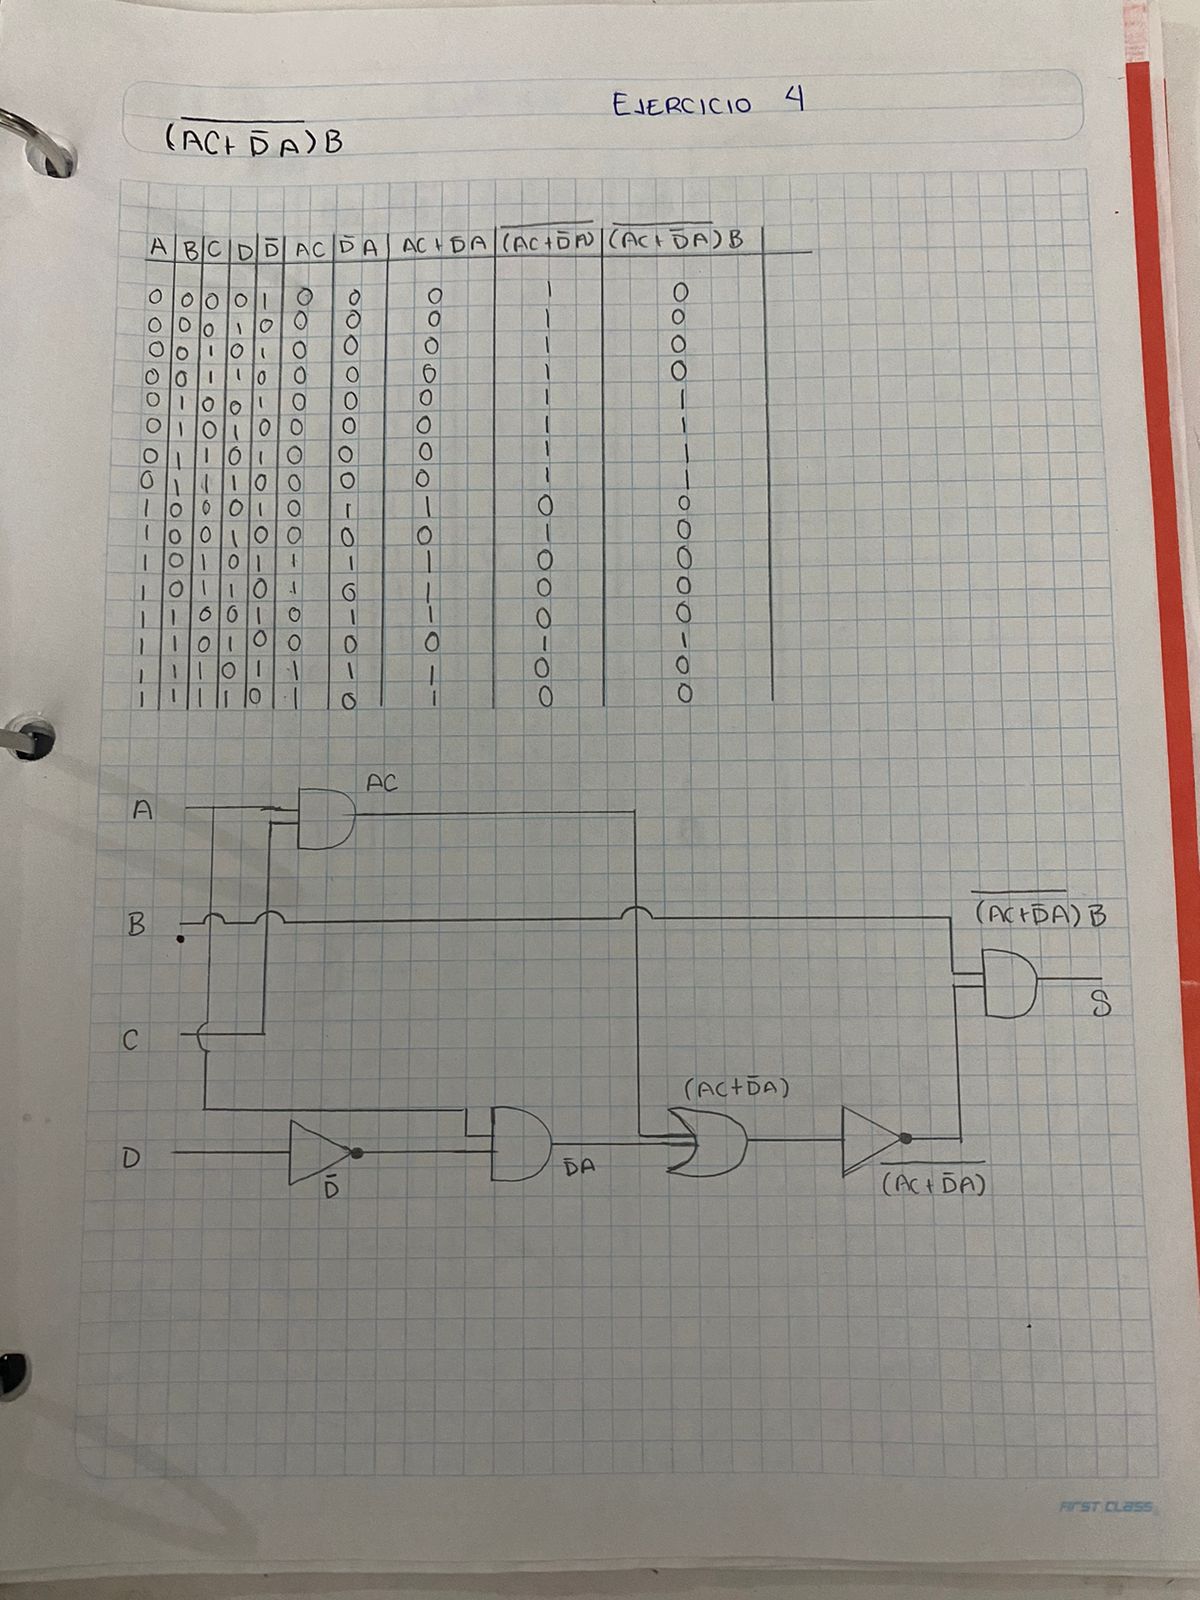 EJERCICIO 4
(A̅C̅+̅ ̅D̅̅ ̅A̅)B
A | B | C | D | D̅ | AC | D̅ A | AC + D̅A | (A̅C̅+̅D̅̅A̅) | (A̅C̅+̅ ̅D̅̅A̅) B |
0 0 0 0 1 0 0 0 1 0
0 0 0 1 0 0 0 0 1 0
0 0 1 0 1 0 0 0 1 0
0 0 1 1 0 0 0 0 1 0
0 1 0 0 1 0 0 0 1 1
0 1 0 1 0 0 0 0 1 1
0 1 1 0 1 0 0 0 1 1
0 1 1 1 0 0 0 0 1 1
1 0 0 0 1 0 1 1 0 0
1 0 0 1 0 0 0 0 1 0
1 0 1 0 1 1 1 1 0 0
1 0 1 1 0 1 0 1 0 0
1 1 0 0 1 0 1 1 0 0
1 1 0 1 0 0 0 0 1 1
1 1 1 0 1 1 1 1 0 0
1 1 1 1 0 1 0 1 0 0
AC
A
(A̅C̅+̅D̅̅A̅) B
B
S
C
(AC+D̅A)
D
D̅
D̅A
(A̅C̅+̅D̅̅A̅)
FIRST CLASS